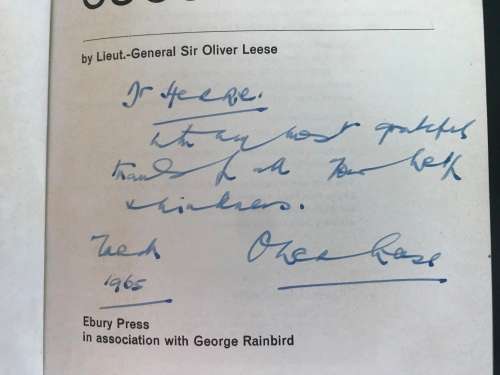 by Lieut.-General Sir Oliver Leese
with my most grateful
thanks for all your help
& kindness.
Oliver Leese
1965
Ebury Press
in association with George Rainbird